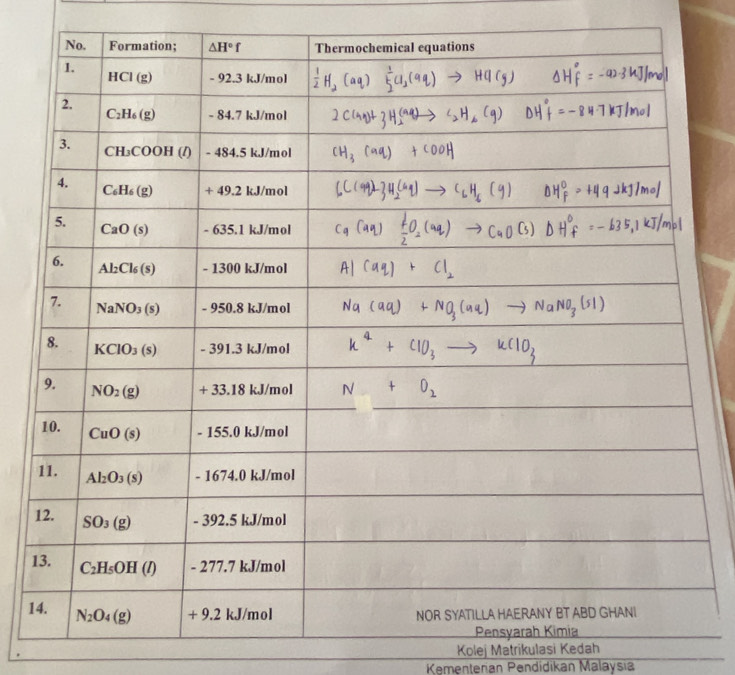 No. Formation; ΔH°f Thermochemical equations
1. HCl (g) - 92.3 kJ/mol ½ H₂ (aq) ½ Cl₂ (aq) → HCl (g) ΔH°f = -92.3 kJ/mol
2. C₂H₆ (g) - 84.7 kJ/mol 2C(aq) + 3H₂(aq) → C₂H₆ (g) ΔH°f = -84.7 kJ/mol
3. CH₃COOH (l) - 484.5 kJ/mol CH₃ (aq) + COOH
4. C₆H₆ (g) + 49.2 kJ/mol 6C(aq) + 3H₂(aq) → C₆H₆ (g) ΔH°f = +49.2 kJ/mol
5. CaO (s) - 635.1 kJ/mol Ca (aq) ½O₂ (aq) → CaO (s) ΔH°f = -635,1 kJ/mol
6. Al₂Cl₆ (s) - 1300 kJ/mol Al (aq) + Cl₂
7. NaNO₃ (s) - 950.8 kJ/mol Na (aq) + NO₃ (aq) → NaNO₃ (s)
8. KClO₃ (s) - 391.3 kJ/mol + ClO₃ → KClO₃
9. NO₂ (g) + 33.18 kJ/mol N + O₂
10. CuO (s) - 155.0 kJ/mol
11. Al₂O₃ (s) - 1674.0 kJ/mol
12. SO₃ (g) - 392.5 kJ/mol
13. C₂H₅OH (l) - 277.7 kJ/mol
14. N₂O₄ (g) + 9.2 kJ/mol
NOR SYATILLA HAERANY BT ABD GHANI
Pensyarah Kimia
Kolej Matrikulasi Kedah
Kementerian Pendidikan Malaysia